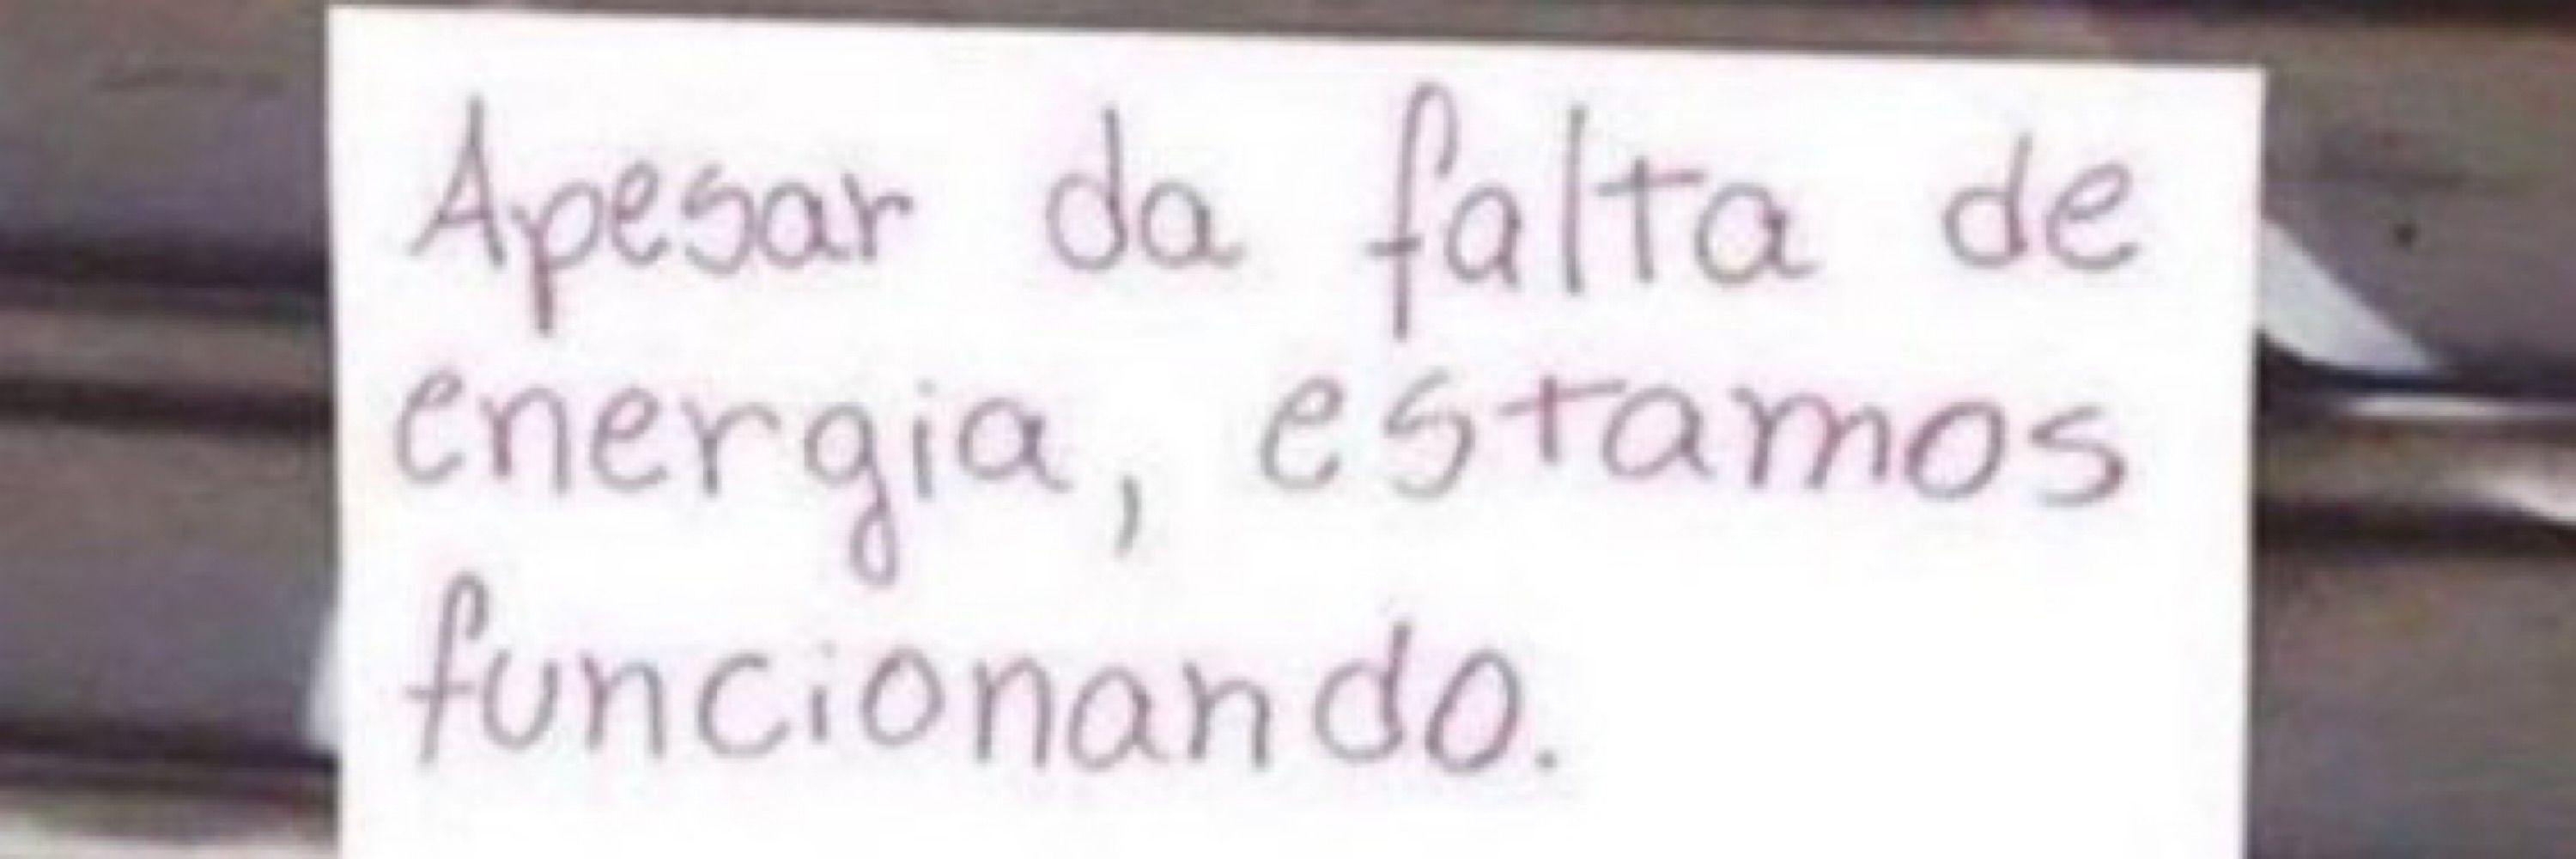 Apesar da falta de
energia, estamos
funcionando.